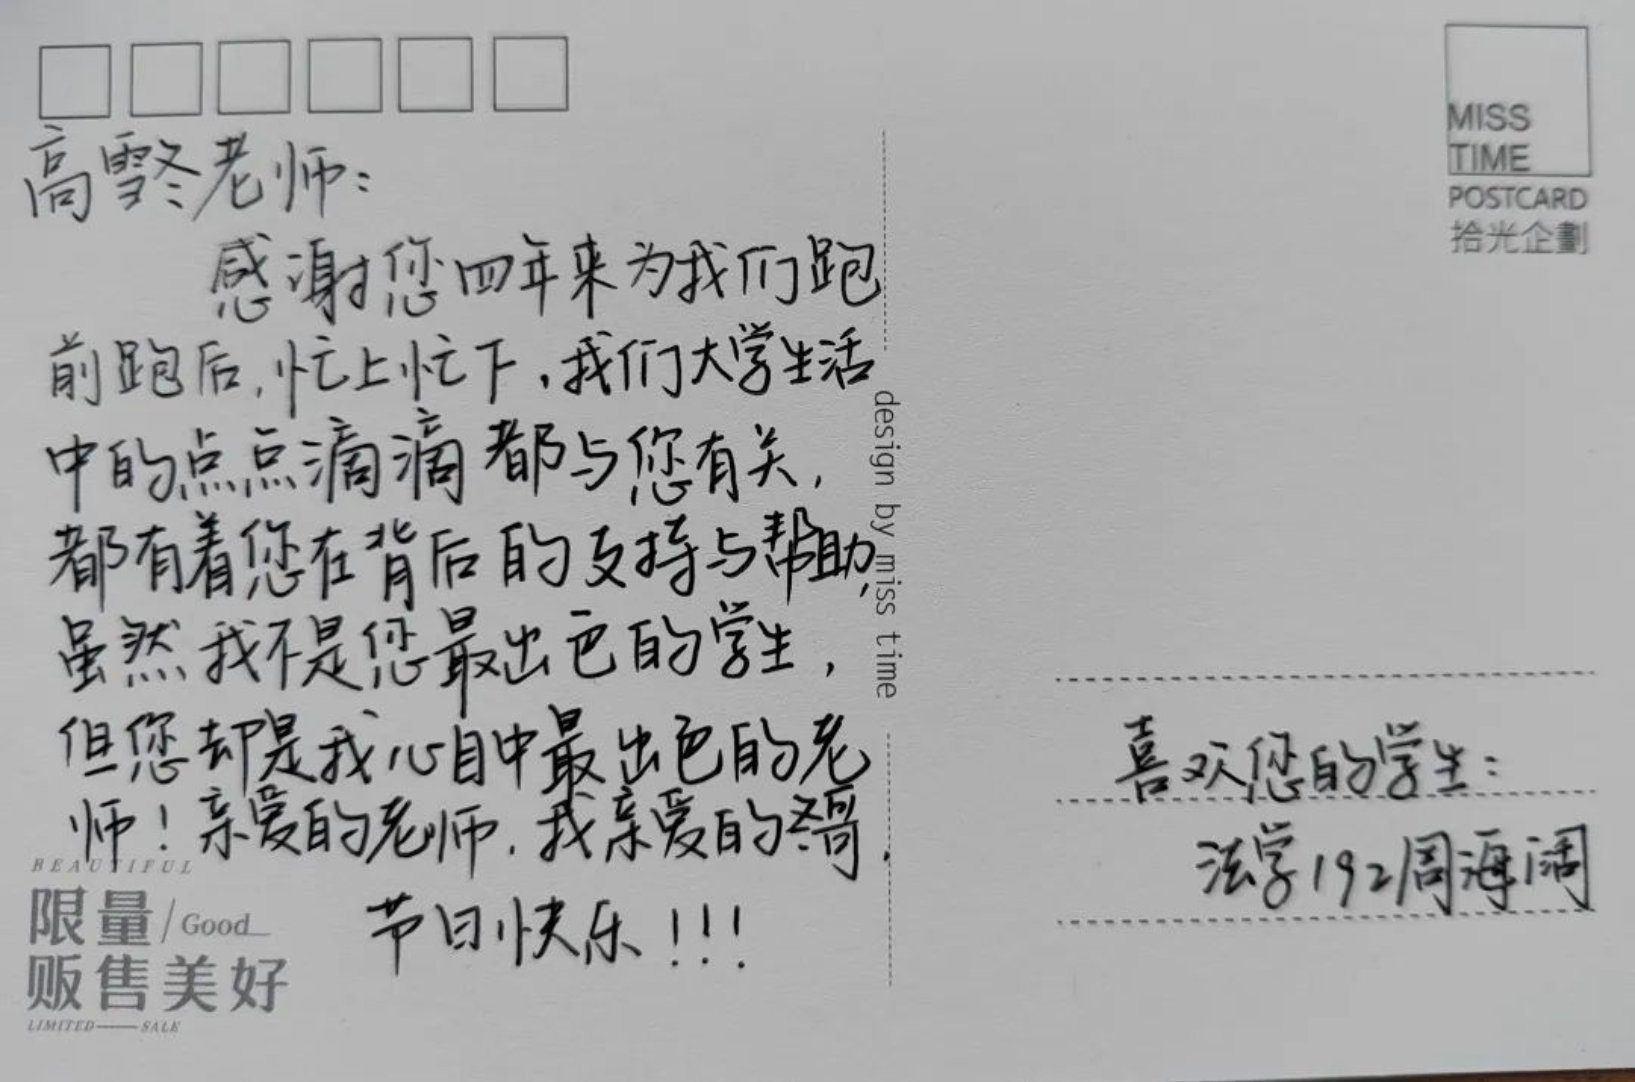 高雪冬老师：
感谢您四年来为我们跑
前跑后,忙上忙下,我们大学生活
中的点点滴滴都与您有关,
都有着您在背后的支持与帮助,
虽然我不是您最出色的学生,
但您却是我心目中最出色的老
师！亲爱的老师,我亲爱的冬哥,
节日快乐！！！
BEAUTIFUL
限量/Good
贩售美好
LIMITED——SALE
design by miss time
MISS
TIME
POSTCARD
拾光企劃
喜欢您的学生：
法学192周海阔